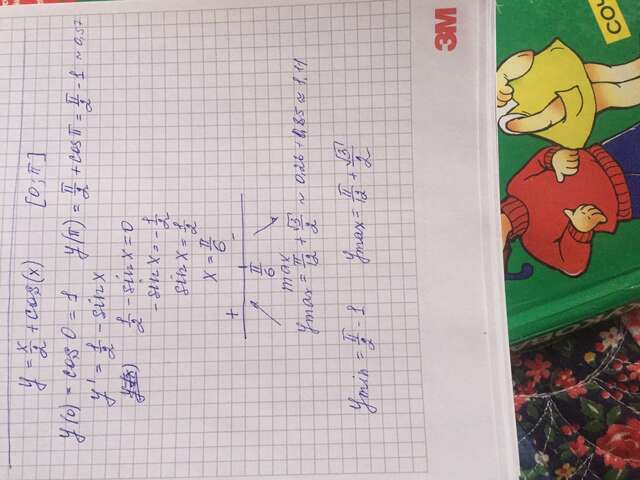 y = x/2 + cos(x) [0; π]
y(0) = cos 0 = 1 y(π) = π/2 + cos π = π/2 - 1 ≈ 0,57
y' = 1/2 - sin x
1/2 - sin x = 0
- sin x = - 1/2
sin x = 1/2
x = π/6
+ -
π/6
max
ymax = π/12 + √3/2 ≈ 0.26 + 0,85 ≈ 1,11
ymin = π/2 - 1 ymax = π/12 + √3/2
3M